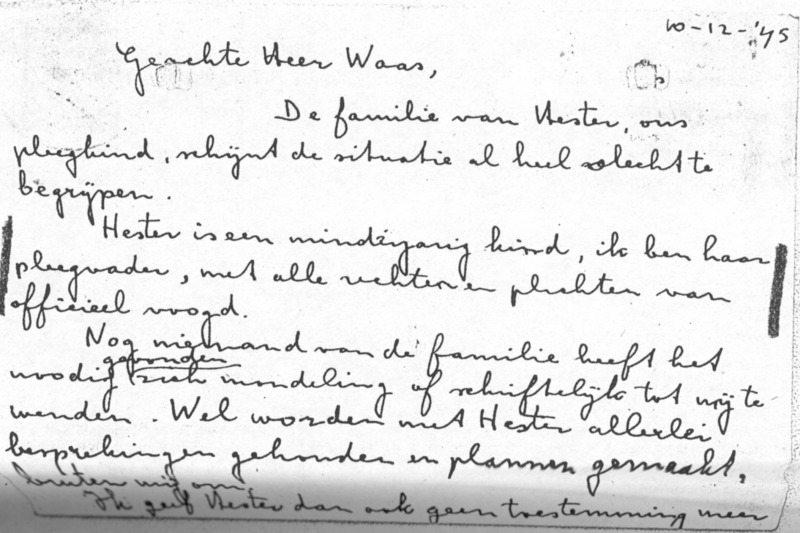 10-12-'45
Geachte Heer Waas,
De familie van Hester, ons
pleegkind, schijnt de situatie al heel slecht te
begrijpen.
Hester is een minderjarig kind, ik ben haar
pleegvader, met alle rechten en plichten van
officieel voogd.
Nog niemand van de familie heeft het
gevonden
nodig zich mondeling of schriftelijk tot mij te
wenden. Wel worden met Hester allerlei
besprekingen gehouden en plannen gemaakt,
buiten mij om.
Ik geef Hester dan ook geen toestemming meer